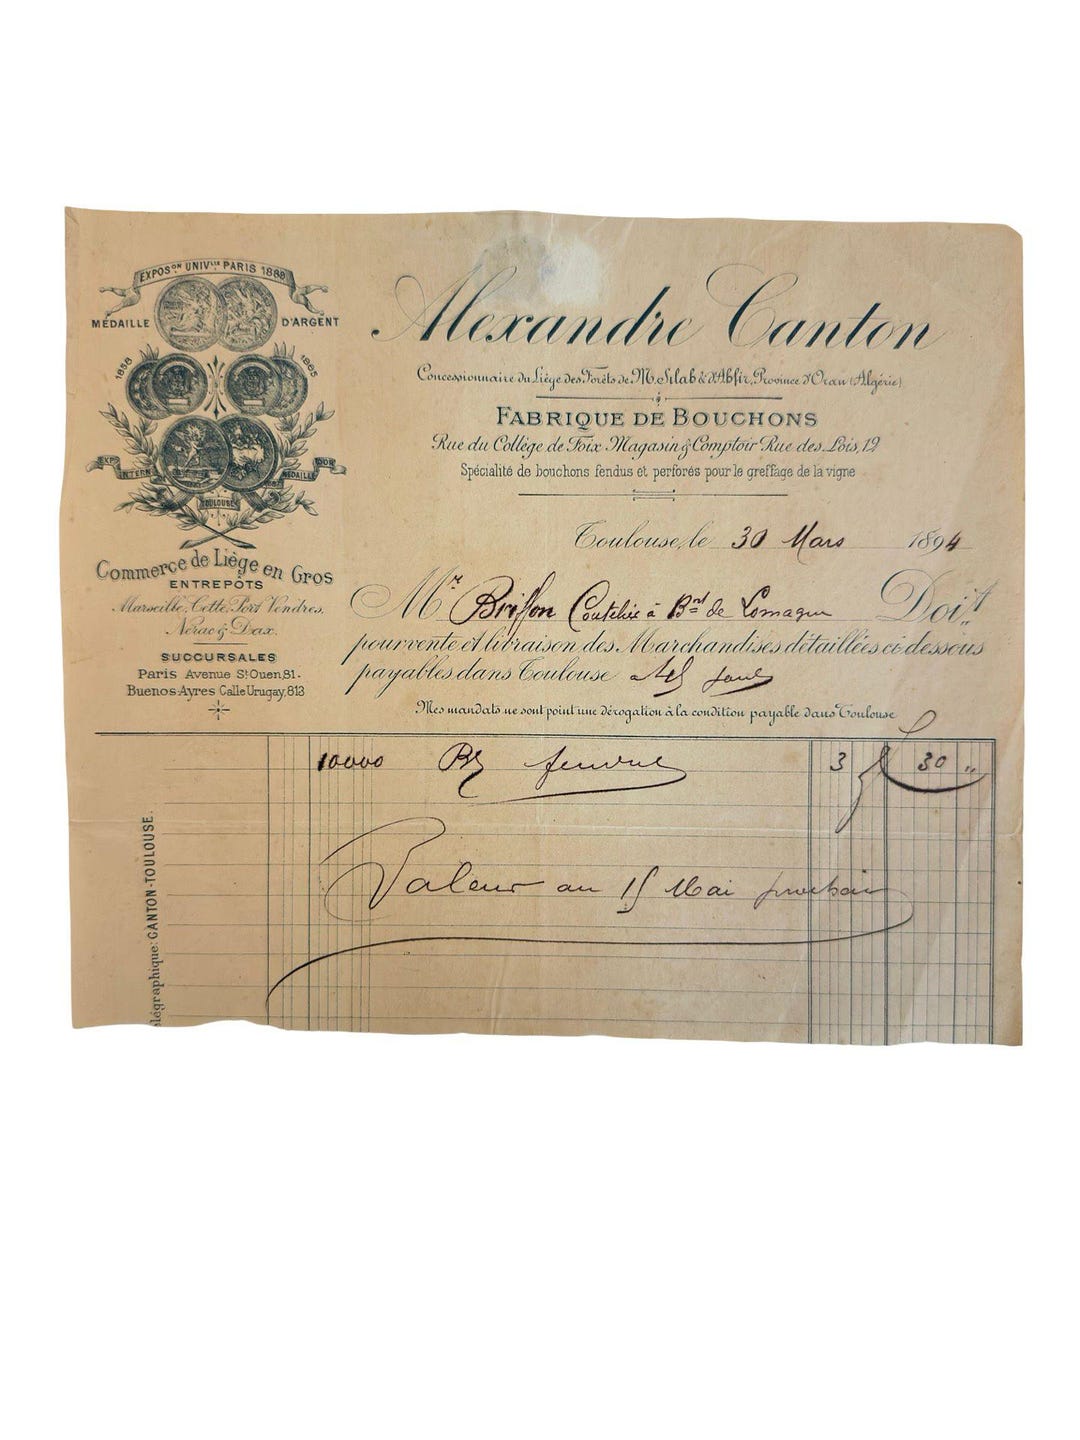 EXPOS.ON UNIV.LLE PARIS 1889
MÉDAILLE D'ARGENT
1858 1865
EXP. INTERN. MÉDAILLE D'OR
TOULOUSE 1887
Commerce de Liège en Gros
ENTREPÔTS
Marseille, Cette, Port Vendres,
Nérac & Dax.
SUCCURSALES
Paris Avenue St Ouen, 81.
Buenos-Ayres Calle Urugay, 813
Alexandre Canton
Concessionnaire du Liège des Forêts de M. Silab & d'Absir, Province d'Oran (Algérie)
FABRIQUE DE BOUCHONS
Rue du Collège de Foix Magasin & Comptoir Rue des Lois, 12
Spécialité de bouchons fendus et perforés pour le greffage de la vigne
Toulouse, le 30 Mars 1894
Mr Briffon à Bmt de Lomagne Doit
pour vente et livraison des Marchandises détaillées ci-dessous
payables dans Toulouse à 45 jours
Mes mandats ne sont point une dérogation à la condition payable dans Toulouse
10000 3 30 "
Valeur au 15 Mai prochain
légraphique: CANTON-TOULOUSE.